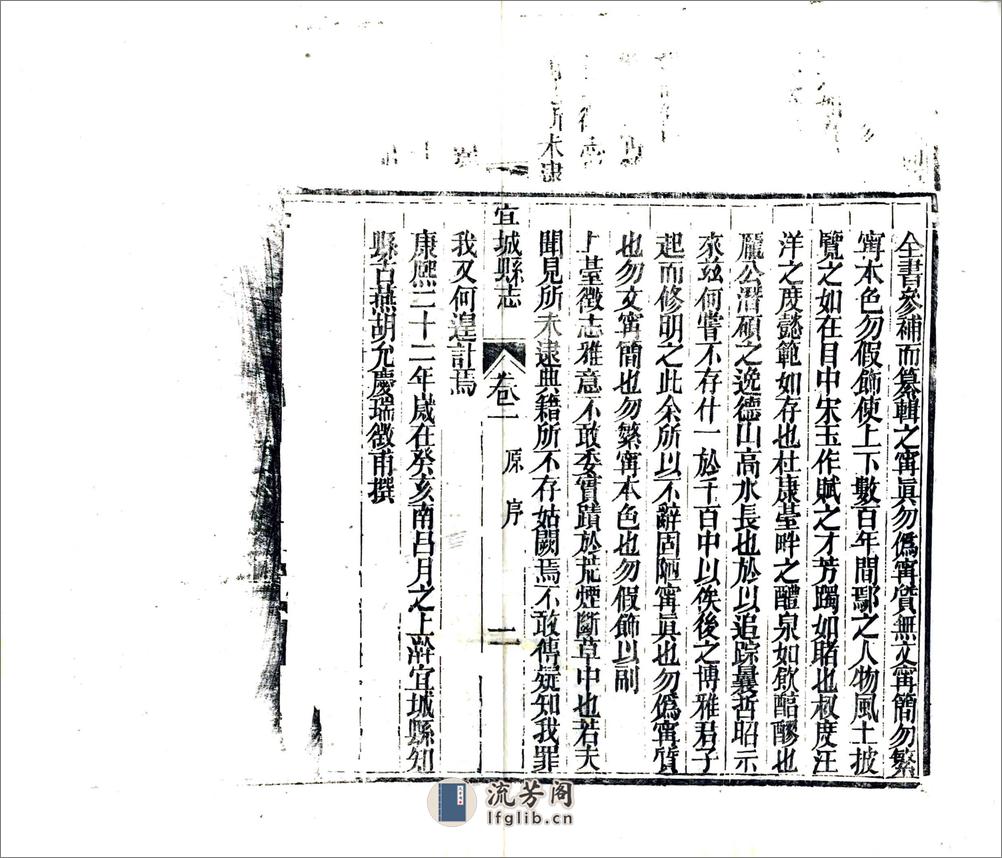 全書參補而纂輯之寗眞勿僞寗質無文寗簡勿繁
寗本色勿假飾使上下數百年間鄢之人物風土披
覽之如在目中宋玉作賦之才芳躅如睹也叔度汪
洋之度懿範如存也杜康臺畔之醴泉如飮醅醪也
龐公潛碩之逸德山高水長也於以追踪曩哲昭示
來茲何嘗不存什一於千百中以俟後之博雅君子
起而修明之此余所以不辭固陋寗眞也勿僞寗質
也勿文寗簡也勿繁寗本色也勿假飾以副
上臺徵志雅意不敢委實蹟於荒煙斷草中也若夫
聞見所未逮典籍所不存姑闕焉不敢傳疑知我罪
宜城縣志 卷一 原序 二
我又何遑計焉
康熙二十二年歲在癸亥南呂月之上澣宜城縣知
縣古燕胡允慶瑞徵甫撰
所未逮
流芳阁
lfglib.cn